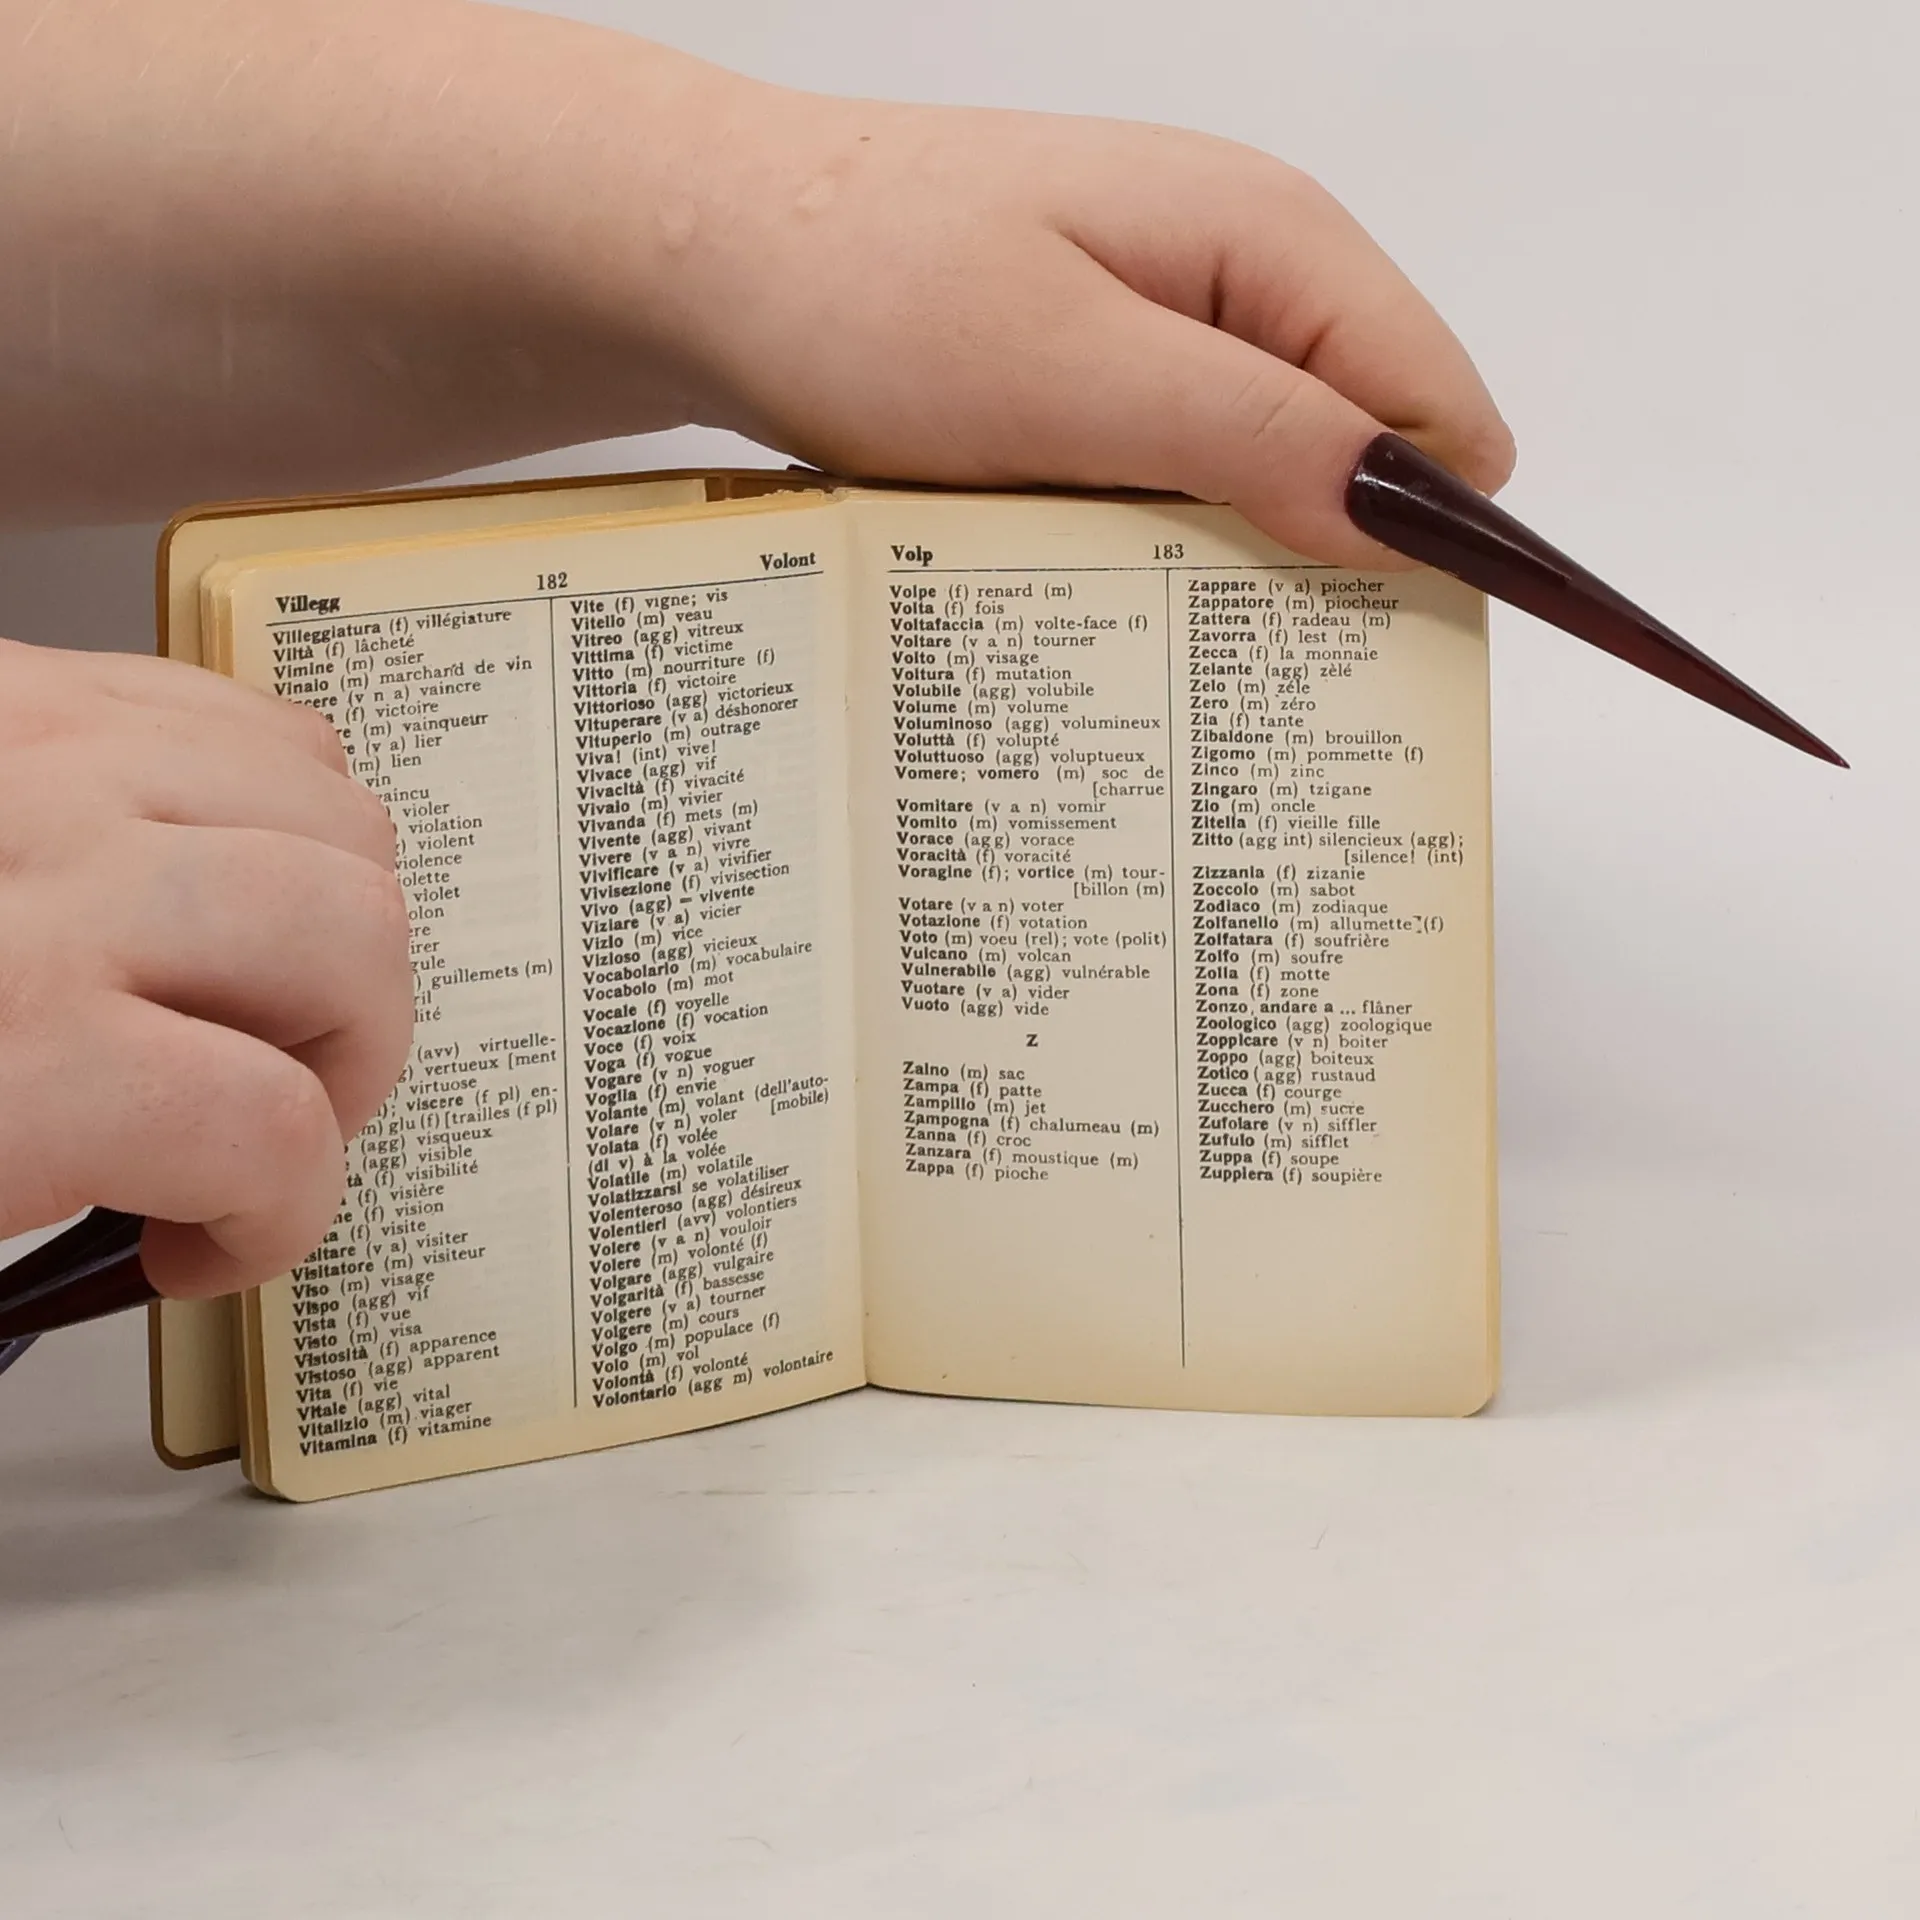 Villegg 182 Volont
Villeggiatura (f) villégiature
Viltà (f) lâcheté
Vimine (m) osier
Vinaio (m) marchand de vin
(v n a) vaincre
(f) victoire
(m) vainqueur
(v a) lier
(m) lien
vin
violer
violation
violent
violence
violet
guillemets (m)
(avv) virtuelle-
vertueux [ment
virtuose
viscere (f pl) en-
glu (f) [trailles (f pl)
(agg) visqueux
(agg) visible
(f) visibilité
(f) visière
(f) vision
(f) visite
(v a) visiter
Visitatore (m) visiteur
Viso (m) visage
Vispo (agg) vif
Vista (f) vue
Visto (m) visa
Vistosità (f) apparence
Vistoso (agg) apparent
Vita (f) vie
Vitale (agg) vital
Vitalizio (m) viager
Vitamina (f) vitamine
Vite (f) vigne; vis
Vitello (m) veau
Vitreo (agg) vitreux
Vittima (f) victime
Vitto (m) nourriture (f)
Vittoria (f) victoire
Vittorioso (agg) victorieux
Vituperare (v a) déshonorer
Vituperio (m) outrage
Viva! (int) vive!
Vivace (agg) vif
Vivacità (f) vivacité
Vivaio (m) vivier
Vivanda (f) mets (m)
Vivente (agg) vivant
Vivere (v a n) vivre
Vivificare (v a) vivifier
Vivisezione (f) vivisection
Vivo (agg) = vivente
Viziare (v a) vicier
Vizio (m) vice
Vizioso (agg) vicieux
Vocabolario (m) vocabulaire
Vocabolo (m) mot
Vocale (f) voyelle
Vocazione (f) vocation
Voce (f) voix
Voga (f) vogue
Vogare (v n) voguer
Voglia (f) envie
Volante (m) volant (dell'auto-
Volare (v n) voler [mobile)
Volata (f) volée
(di v) à la volée
Volatile (m) volatile
Volatizzarsi se volatiliser
Volenteroso (agg) désireux
Volentieri (avv) volontiers
Volere (v a n) vouloir
Volere (m) volonté (f)
Volgare (agg) vulgaire
Volgarità (f) bassesse
Volgere (v a) tourner
Volgere (m) cours
Volgo (m) populace (f)
Volo (m) vol
Volontà (f) volonté
Volontario (agg m) volontaire
Volp 183
Volpe (f) renard (m)
Volta (f) fois
Voltafaccia (m) volte-face (f)
Voltare (v a n) tourner
Volto (m) visage
Voltura (f) mutation
Volubile (agg) volubile
Volume (m) volume
Voluminoso (agg) volumineux
Voluttà (f) volupté
Voluttuoso (agg) voluptueux
Vomere; vomero (m) soc de
[charrue
Vomitare (v a n) vomir
Vomito (m) vomissement
Vorace (agg) vorace
Voracità (f) voracité
Voragine (f); vortice (m) tour-
[billon (m)
Votare (v a n) voter
Votazione (f) votation
Voto (m) voeu (rel); vote (polit)
Vulcano (m) volcan
Vulnerabile (agg) vulnérable
Vuotare (v a) vider
Vuoto (agg) vide
Z
Zaino (m) sac
Zampa (f) patte
Zampillo (m) jet
Zampogna (f) chalumeau (m)
Zanna (f) croc
Zanzara (f) moustique (m)
Zappa (f) pioche
Zappare (v a) piocher
Zappatore (m) piocheur
Zattera (f) radeau (m)
Zavorra (f) lest (m)
Zecca (f) la monnaie
Zelante (agg) zèlé
Zelo (m) zéle
Zero (m) zéro
Zia (f) tante
Zibaldone (m) brouillon
Zigomo (m) pommette (f)
Zinco (m) zinc
Zingaro (m) tzigane
Zio (m) oncle
Zitella (f) vieille fille
Zitto (agg int) silencieux (agg);
[silence! (int)
Zizzania (f) zizanie
Zoccolo (m) sabot
Zodiaco (m) zodiaque
Zolfanello (m) allumette (f)
Zolfatara (f) soufrière
Zolfo (m) soufre
Zolla (f) motte
Zona (f) zone
Zonzo, andare a ... flâner
Zoologico (agg) zoologique
Zoppicare (v n) boiter
Zoppo (agg) boiteux
Zotico (agg) rustaud
Zucca (f) courge
Zucchero (m) sucre
Zufolare (v n) siffler
Zufulo (m) sifflet
Zuppa (f) soupe
Zuppiera (f) soupière